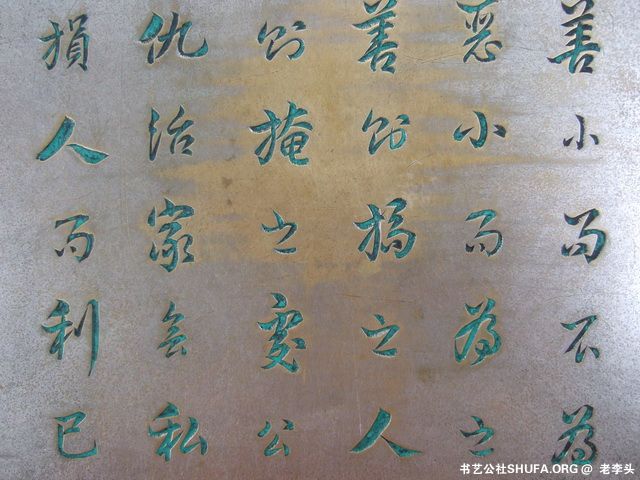 善小而不為
惡小而為之
善則揚之人
則掩之處公
仇治家無私
損人而利己
书艺公社SHUFA.ORG @ 老李头